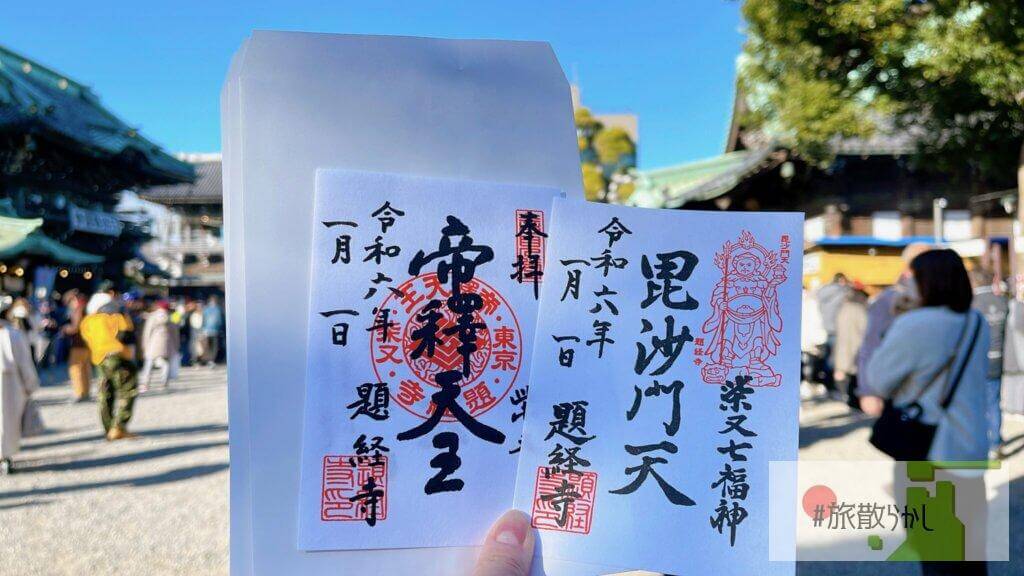 奉拝
帝釋天王
令和六年
一月一日
題経寺
東京
毘沙門天
柴又七福神
題経寺
令和六年
一月一日
題経寺
#旅散らかし